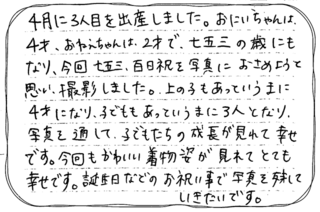 4月に3人目を出産しました。おにいちゃんは、
4才、おねえちゃんは、2才で、七五三の歳にも
なり、今回七五三、百日祝を写真におさめようと
思い、撮影しました。上の子もあっというまに
4才になり、子どももあっというまに3人となり、
写真を通して、子どもたちの成長が見れて幸せ
です。今回もかわいい着物姿が見れてとても
幸せです。誕生日などのお祝い事で写真を残して
いきたいです。